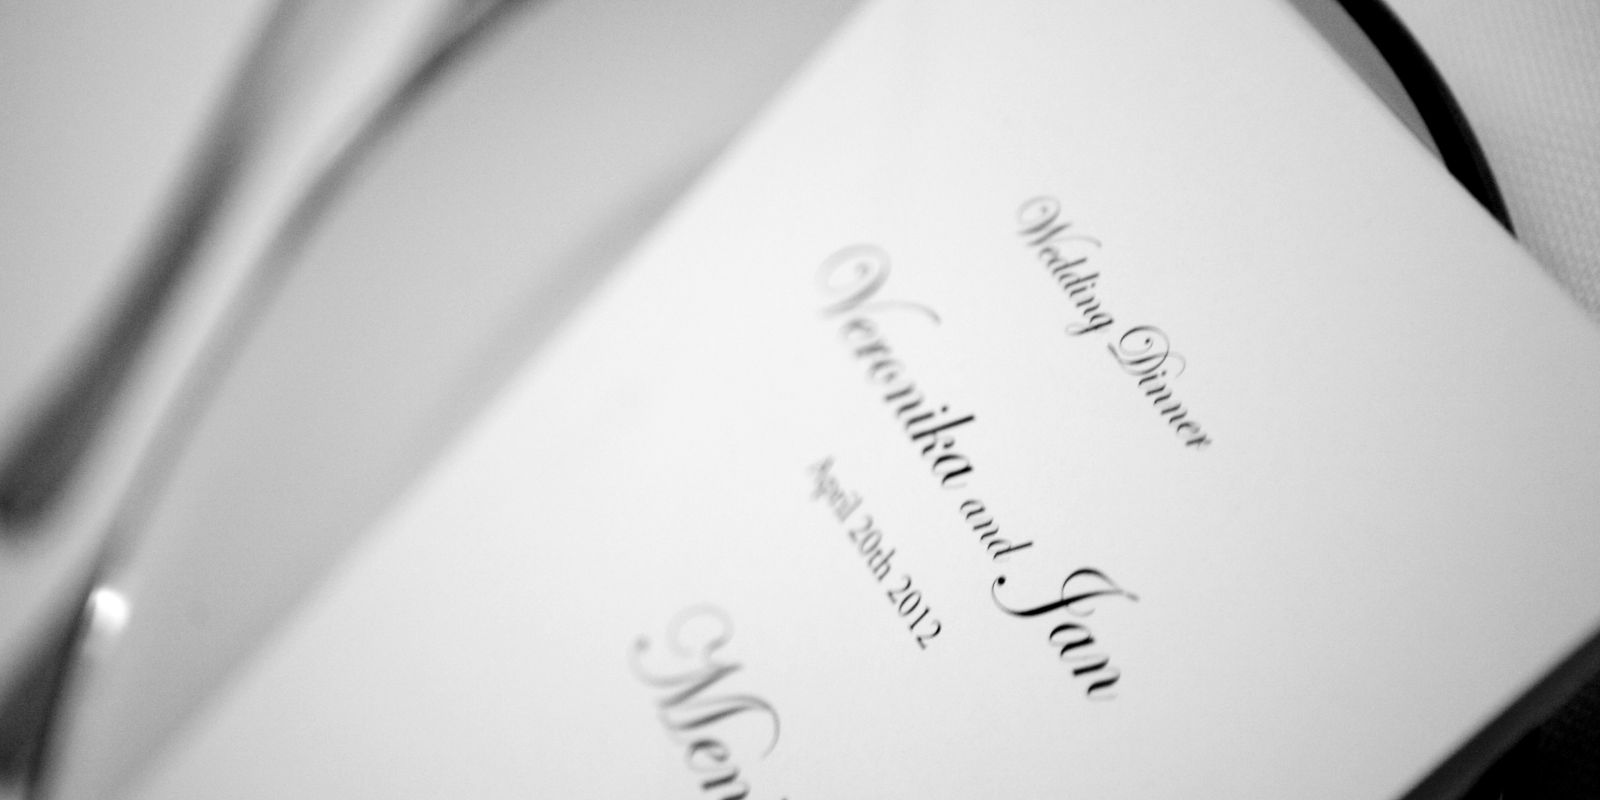 Wedding Dinner
Veronika and Jan
April 20th 2012